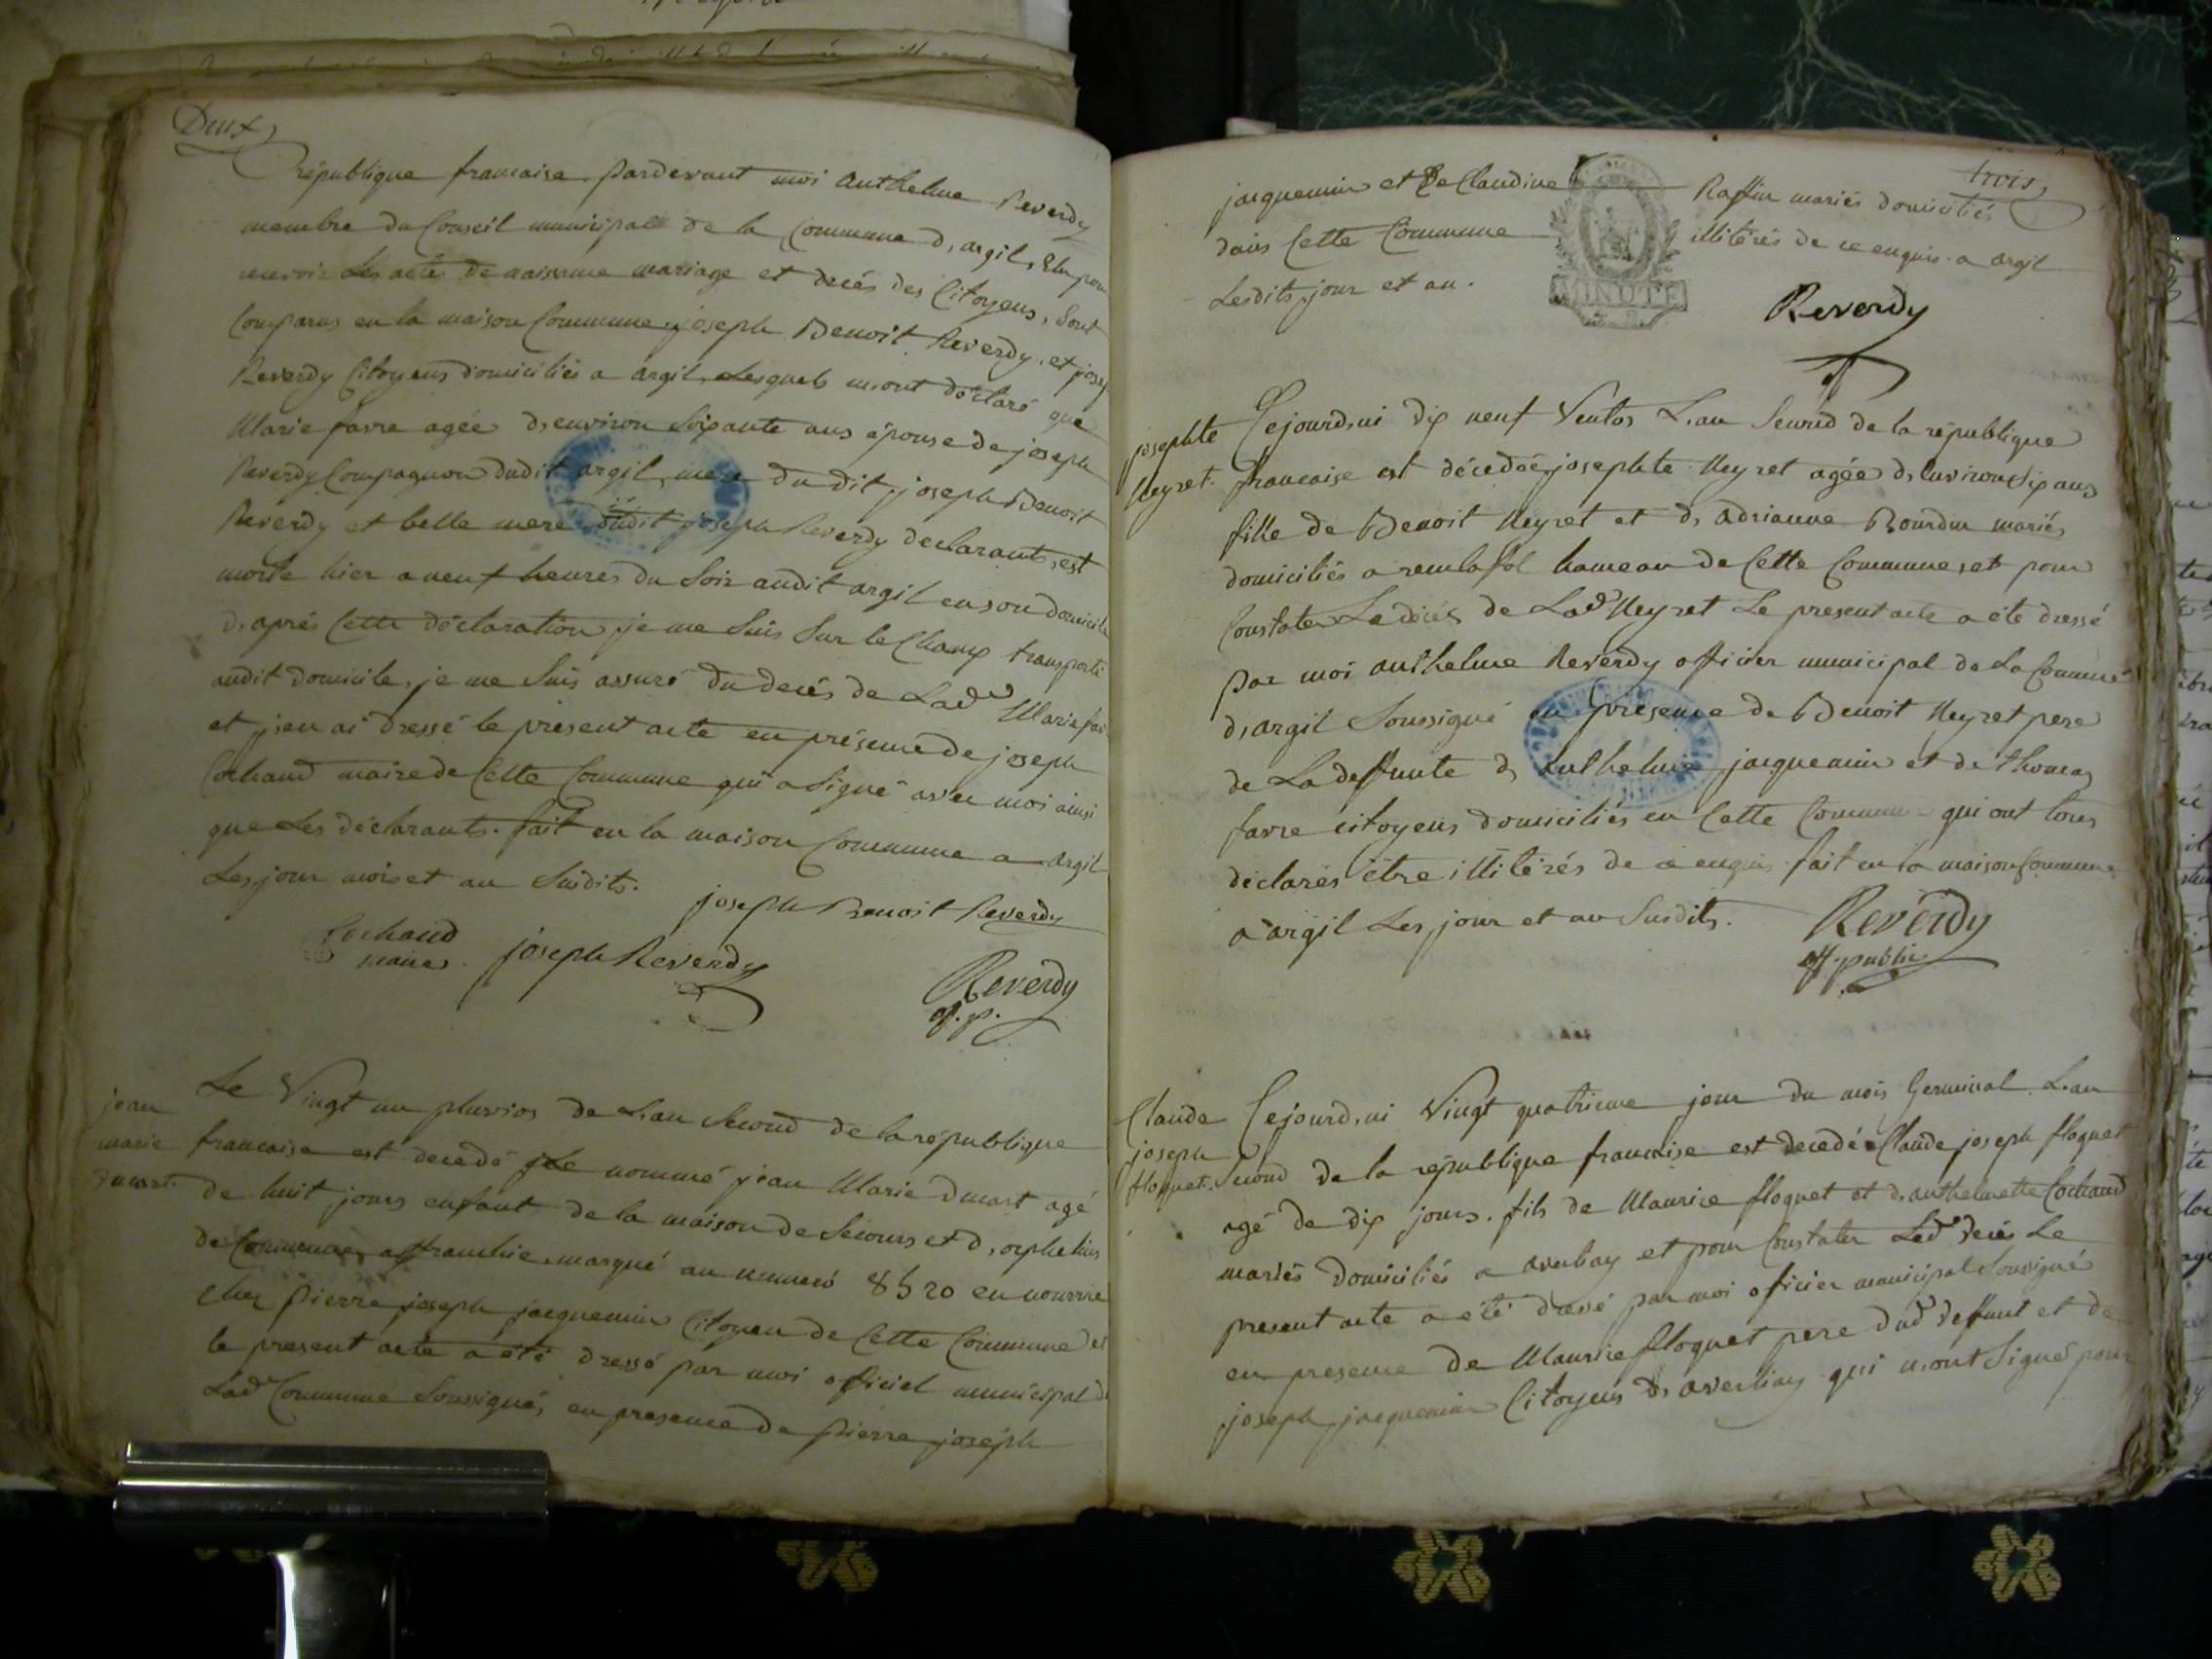 Deux
république francaise. pardevant moi Anthelme Reverdy
membre du Conseil municipal de la Commune d,argil, Elu pour
recevoir Les actes de naissance mariage et decés des Citoyens, Sont
Comparus en la maison Commune joseph Benoit Reverdy, et josep
Reverdy Citoyens domiciliés a argil, Lesquels m,ont déclaré que
Marie favre agée d,environ Soixante ans épouse de joseph
Reverdy Compagnon dudit argil, mere du dit joseph Benoit
Reverdy et belle mere dudit joseph Reverdy declarants, est
morte hier a neuf heures du Soir audit argil en son domicile
d,aprés Cette déclaration, je me Suis Sur le Champ transporté
audit domicile, je me Suis assuré du decés de Lade Marie fav
et j,en ai dressé le présent acte en présence de joseph
Cochaud maire de Cette Commune qui a Signé avec moi ainsi
que Les déclarants. fait en la maison Commune a argil
Les jour mois et an Susdits.
joseph Benoit Reverdy
Cochaud
maire
joseph Reverdy
Reverdy
of. p.
jean
marie
dmart.
Le Vingt un pluvios de L,an Second de la république
francaise est decedé le nommé jean Marie dmart agé
de huit jours enfant de la maison de Secours et d,orphelins
de Commune affranchie, marqué au numeró 8520 en nourrice
Chez pierre joseph jacquemin Citoyen de Cette Commune et
le present acte a été dressé par moi officiel municipal d
Lade Commune Soussigné, en presence de pierre joseph
trois
jacquemin et de Claudine Raffin mariés domiciliés
dans Cette Commune illitérés de ce enquis. a argil
Lesdits jour et an.
MINUTE
Reverdy
josephte
Neyret.
Cejourd,ui dix neuf Ventos L,an Second de la république
francaise est décedée josephte Neyret agée d,environ Six ans
fille de Benoit Neyret et d, adrianne Bourdin mariés
domiciliés a hameau de Cette Commune, et pour
Constater Le décés de Lade Neyret Le present acte a été dressé
par moi anthelme Reverdy officier municipal de La Commune
d,argil Soussigné en presence de Benoit Neyret pere
de La deffunte d, anthelme jacquemin et de thomas
favre citoyens domiciliés en Cette Commune qui ont tous
déclarés être illitérés de ce enquis. fait en la maison Commune
a argil Les jour et an Susdits.
Reverdy
off. public.
Claude
joseph
floquet.
Cejourd,ui Vingt quatrieme jour du mois Germinal L,an
Second de la république francaise est decedé Claude joseph floquet
agé de dix jours. fils de Maurice floquet et d,anthelmette Cochaud
mariés domiciliés a averliay et pour Constater Led decés Le
present acte a été dressé par moi officier municipal Soussigné
en presence de Maurice floquet pere dud deffunt et de
joseph jacquemin Citoyens d, averliay qui n,ont Signé pour